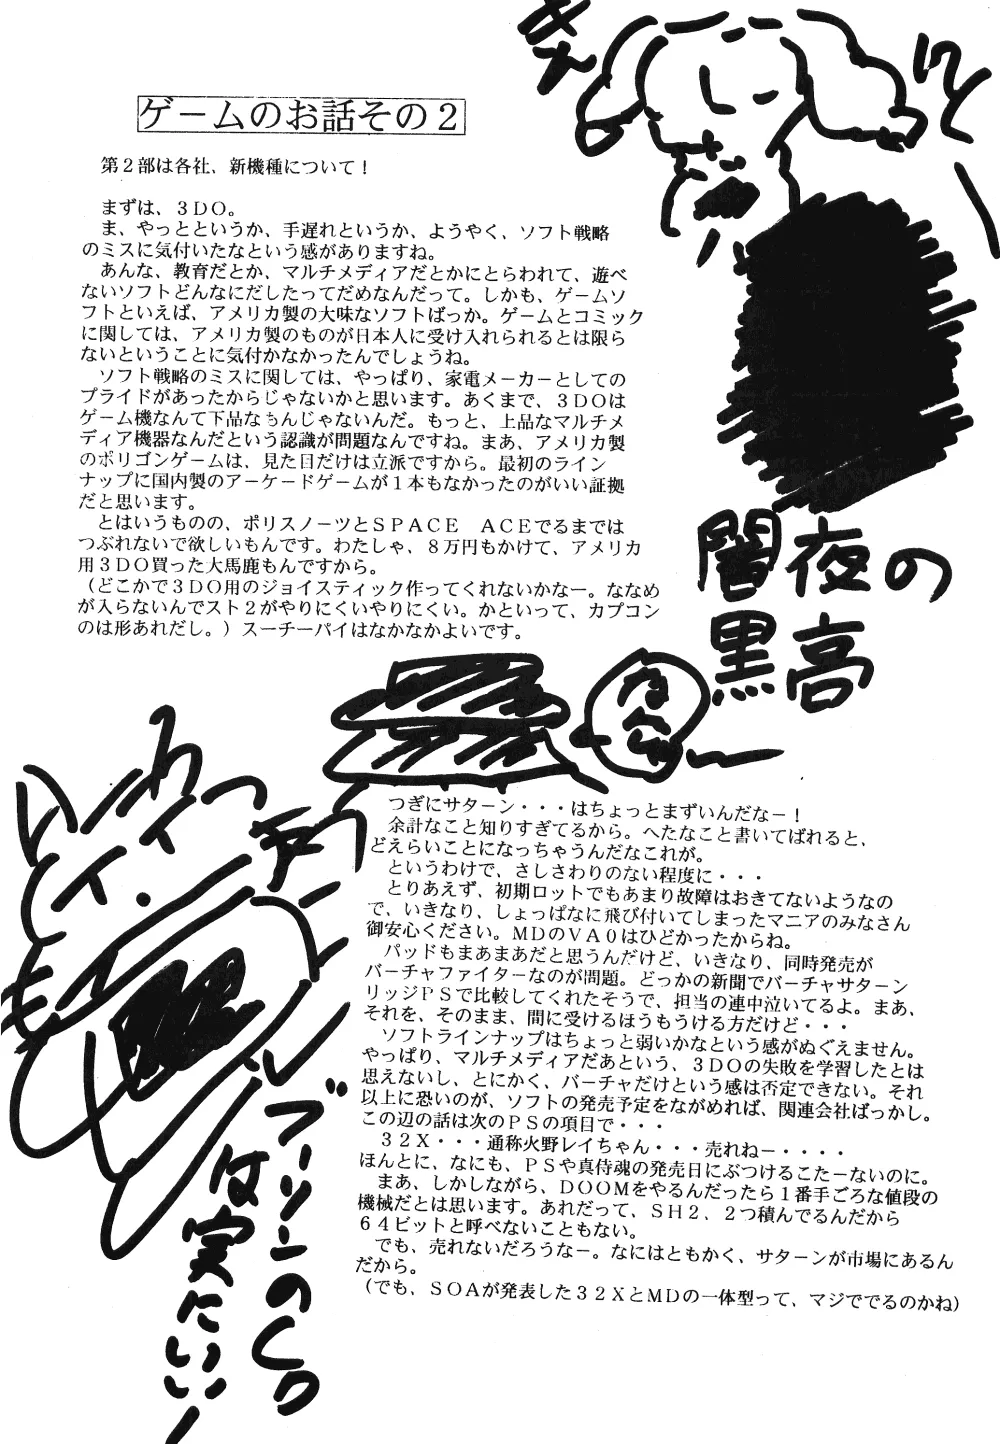 ゲームのお話その2
第2部は各社、新機種について!
まずは、3DO。
ま、やっとというか、手遅れというか、ようやく、ソフト戦略
のミスに気付いたなという感がありますね。
あんな、教育だとか、マルチメディアだとかにとらわれて、遊べ
ないソフトどんなにだしたってだめなんだって。しかも、ゲームソ
フトといえば、アメリカ製の大味なソフトばっか。ゲームとコミック
に関しては、アメリカ製のものが日本人に受け入れられるとは限ら
ないということに気付かなかったんでしょうね。
ソフト戦略のミスに関しては、やっぱり、家電メーカーとしての
プライドがあったからじゃないかと思います。あくまで、3DOは
ゲーム機なんて下品なもんじゃないんだ。もっと、上品なマルチメ
ディア機器なんだという認識が問題なんですね。まあ、アメリカ製
のポリゴンゲームは、見た目だけは立派ですから。最初のライン
ナップに国内製のアーケードゲームが1本もなかったのがいい証拠
だと思います。
とはいうものの、ポリスノーツとSPACE ACEでるまでは
つぶれないで欲しいもんです。わたしゃ、8万円もかけて、アメリカ
用3DO買った大馬鹿もんですから。
(どこかで3DO用のジョイスティック作ってくれないかなー。ななめ
が入らないんでスト2がやりにくいやりにくい。かといって、カプコン
のは形あれだし。)スーチーパイはなかなかよいです。
闇夜の
黒高
つぎにサターン・・・はちょっとまずいんだなー!
余計なこと知りすぎてるから。へたなこと書いてばれると、
どえらいことになっちゃうんだなこれが。
というわけで、さしさわりのない程度に・・・
とりあえず、初期ロットでもあまり故障はおきてないようなの
で、いきなり、しょっぱなに飛び付いてしまったマニアのみなさん
御安心ください。MDのVA0はひどかったからね。
パッドもまあまあだと思うんだけど、いきなり、同時発売が
バーチャファイターなのが問題。どっかの新聞でバーチャサターン
リッジPSで比較してくれたそうで、担当の連中泣いてるよ。まあ、
それを、そのまま、間に受けるほうもうける方だけど・・・
ソフトラインナップはちょっと弱いかなという感がぬぐえません。
やっぱり、マルチメディアだあという、3DOの失敗を学習したとは
思えないし、とにかく、バーチャだけという感は否定できない。それ
以上に恐いのが、ソフトの発売予定をながめれば、関連会社ばっかし。
この辺の話は次のPSの項目で・・・
32X・・・通称火野レイちゃん・・・売れねー・・・・
ほんとに、なにも、PSや真侍魂の発売日にぶつけるこたーないのに。
まあ、しかしながら、DOOMをやるんだったら1番手ごろな値段の
機械だとは思います。あれだって、SH2、2つ積んでるんだから
64ビットと呼べないこともない。
でも、売れないだろうなー。なにはともかく、サターンが市場にあるん
だから。
(でも、SOAが発表した32XとMDの一体型って、マジででるのかね)
は実にいい!